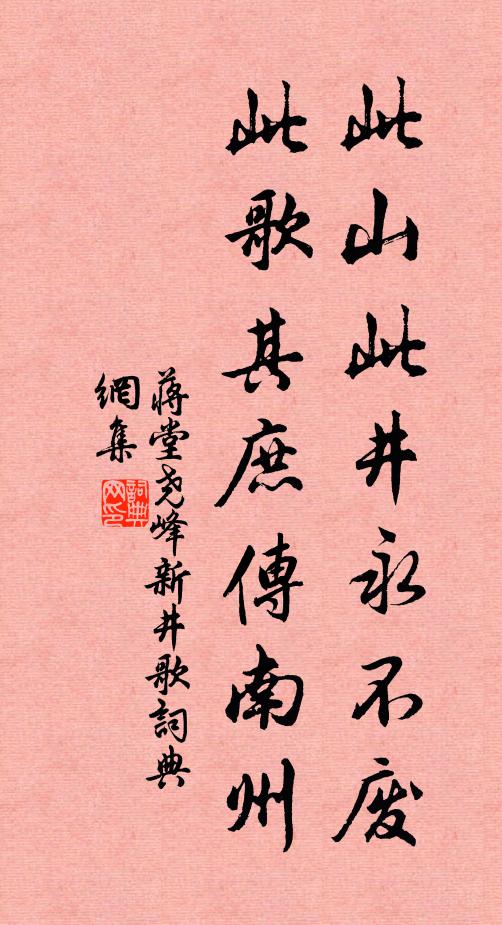 此山此井永不废
此歌其庶傳南州
蔣堂尧峰新井歌詞典
網集
詞典
网印